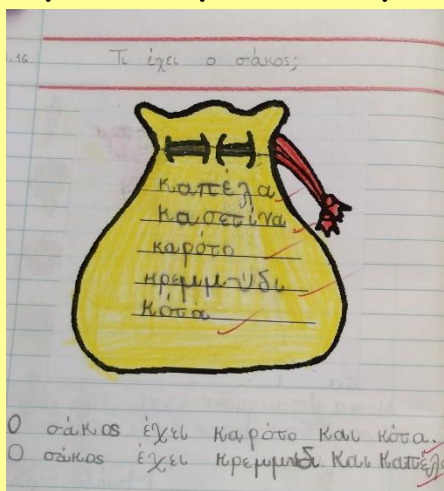 .16 Τι έχει ο σάκος;
καπέλα
κασετίνα
καρότο
κρεμμύδι
κότα
Ο σάκος έχει καρότο και κότα.
Ο σάκος έχει κρεμμυδι και καπέλα